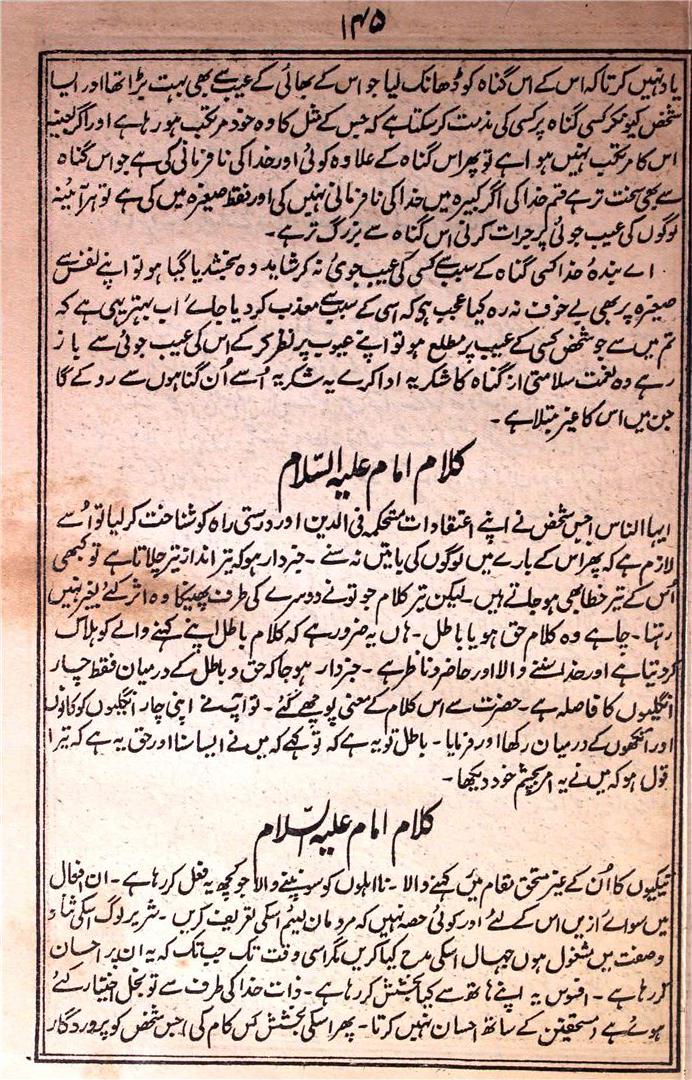 ۱۴۵
یاد نہیں کرتا کہ اس کے اس گناہ کو ڈھانک لیا جو اس کے بھائی کے عیب سے بھی بہت بڑا تھا اور ایسا
شخص کیونکر کسی گناہ پر کسی کی مذمت کر سکتا ہے کہ جس کے مثل کا وہ خود مرتکب ہو رہا ہے اور اگر بعینہ
اس کا مرتکب نہیں ہوا ہے تو پھر اس گناہ کے علاوہ کوئی اور خدا کی نافرمانی کی ہے جو اس گناہ
سے بھی سخت تر ہے قسم خدا کی اگر کبیرہ میں خدا کی نافرمانی نہیں کی اور فقط صغیرہ میں کی ہے تو ہر آئینہ
لوگوں کی عیب جوئی پر جرات کرنی اس گناہ سے بزرگ تر ہے۔
اے بندۂ خدا کسی گناہ کے سبب سے کسی کی عیب جوئی نہ کر شاید وہ بخشدیا گیا ہو تو اپنے نفس سے
صغیرہ پر بھی بے خوف نہ رہ کیا عجب ہی کہ اسی کے سبب سے معذب کر دیا جائے اب بہتر یہی ہے کہ
تم میں سے جو شخص کسی کے عیب پر مطلع ہو تو اپنے عیوب پر نظر کر کے اس کی عیب جوئی سے باز
رہے وہ نعمت سلامتی از گناہ کا شکریہ ادا کرے یہ شکریہ اُسے اُن گناہوں سے روکے گا
جن میں اس کا غیر مبتلا ہے۔
کلام امام علیہ السّلام
ایہا الناس اجس شخص نے اپنے اعتقادات مستحکمہ فی الدین اور درستی راہ کو شناخت کر لیا تو اُسے
لازم ہے کہ پھر اس کے بارے میں لوگوں کی باتیں نہ سنے۔ خبردار ہو کہ تیر انداز تیر چلاتا ہے تو کبھی
اُس کے تیر خطا بھی ہو جاتے ہیں۔ لیکن تیر کلام جو تونے دوسرے کی طرف پھینکا وہ اثر کئے بغیر نہیں
رہتا۔ چاہے وہ کلام حق ہو یا باطل۔ ہاں یہ ضرور ہے کہ کلام باطل اپنے کہنے والے کو ہلاک
کر دیتا ہے اور خدا سننے والا اور حاضر و ناظر ہے۔ خبردار ہو جا کہ حق و باطل کے درمیان فقط چار
انگلیوں کا فاصلہ ہے۔ حضرت سے اس کلام کے معنی پوچھے گئے۔ تو آپ نے اپنی چار انگلیوں کو کانوں
اور آنکھوں کے درمیان رکھا اور فرمایا۔ باطل تو یہ ہے کہ تو کہے کہ میں نے ایسا سنا اور حق یہ ہے کہ تیرا
قول ہو کہ میں نے یہ امر بچشم خود دیکھا۔
کلام امام علیہ السلام
نیکیوں کا اُن کے غیر مستحق مقام میں کہنے والا۔ نااہلوں کو سونپنے والا جو کچھ یہ فعل کر رہا ہے۔ ان افعال
میں سوائے ازیں اس کے لئے اور کوئی حصہ نہیں کہ مردمان لئیم اسکی تعریف کریں۔ شریر لوگ اسکی ثنا و
وصفت میں مشغول ہوں جہال اسکی مدح کیا کریں مگر اسی وقت تک جب تک کہ یہ ان پر احسان
کر رہا ہے۔ افسوس یہ اپنے ہاتھ سے کیا بخشش کر رہا ہے۔ ذات خدا کی طرف سے تو بخل اختیار کئے
ہوئے ہے مستحقین کے ساتھ احسان نہیں کرتا۔ پھر اسکی بخشش کس کام کی اجس شخص کو پروردگار